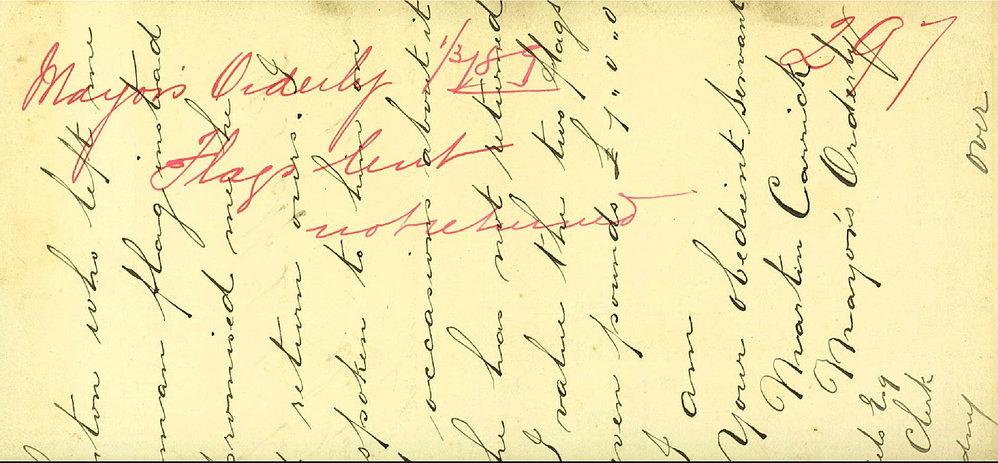 Mayor's Orderly 1/3/89
Flags lent
not returned
297
ton who left me
man flag instead
promised me he
return ours. I
spoken to him on
occasions about it
he has not returned
I value the two flags
even pounds £7"0"0
I am
Your obedient servant
Martin Carrick
Mayor's Orderly
Esq
Clerk
dney
over